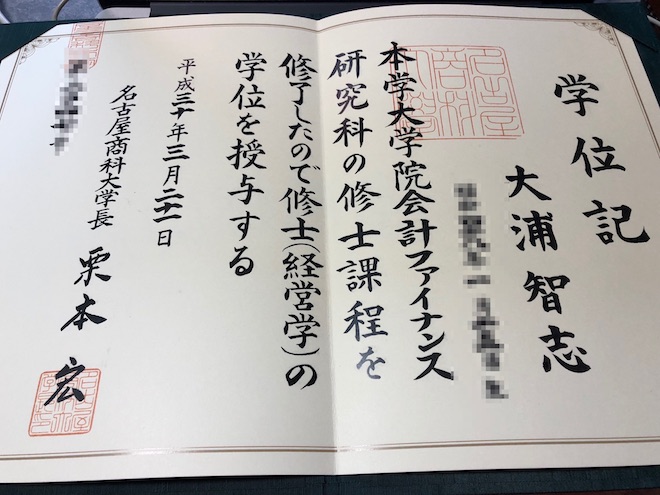 学位記
大浦智志
本学大学院会計ファイナンス
研究科の修士課程を
修了したので修士(経営学)の
学位を授与する
平成三十年三月二十一日
名古屋商科大学長 栗本 宏